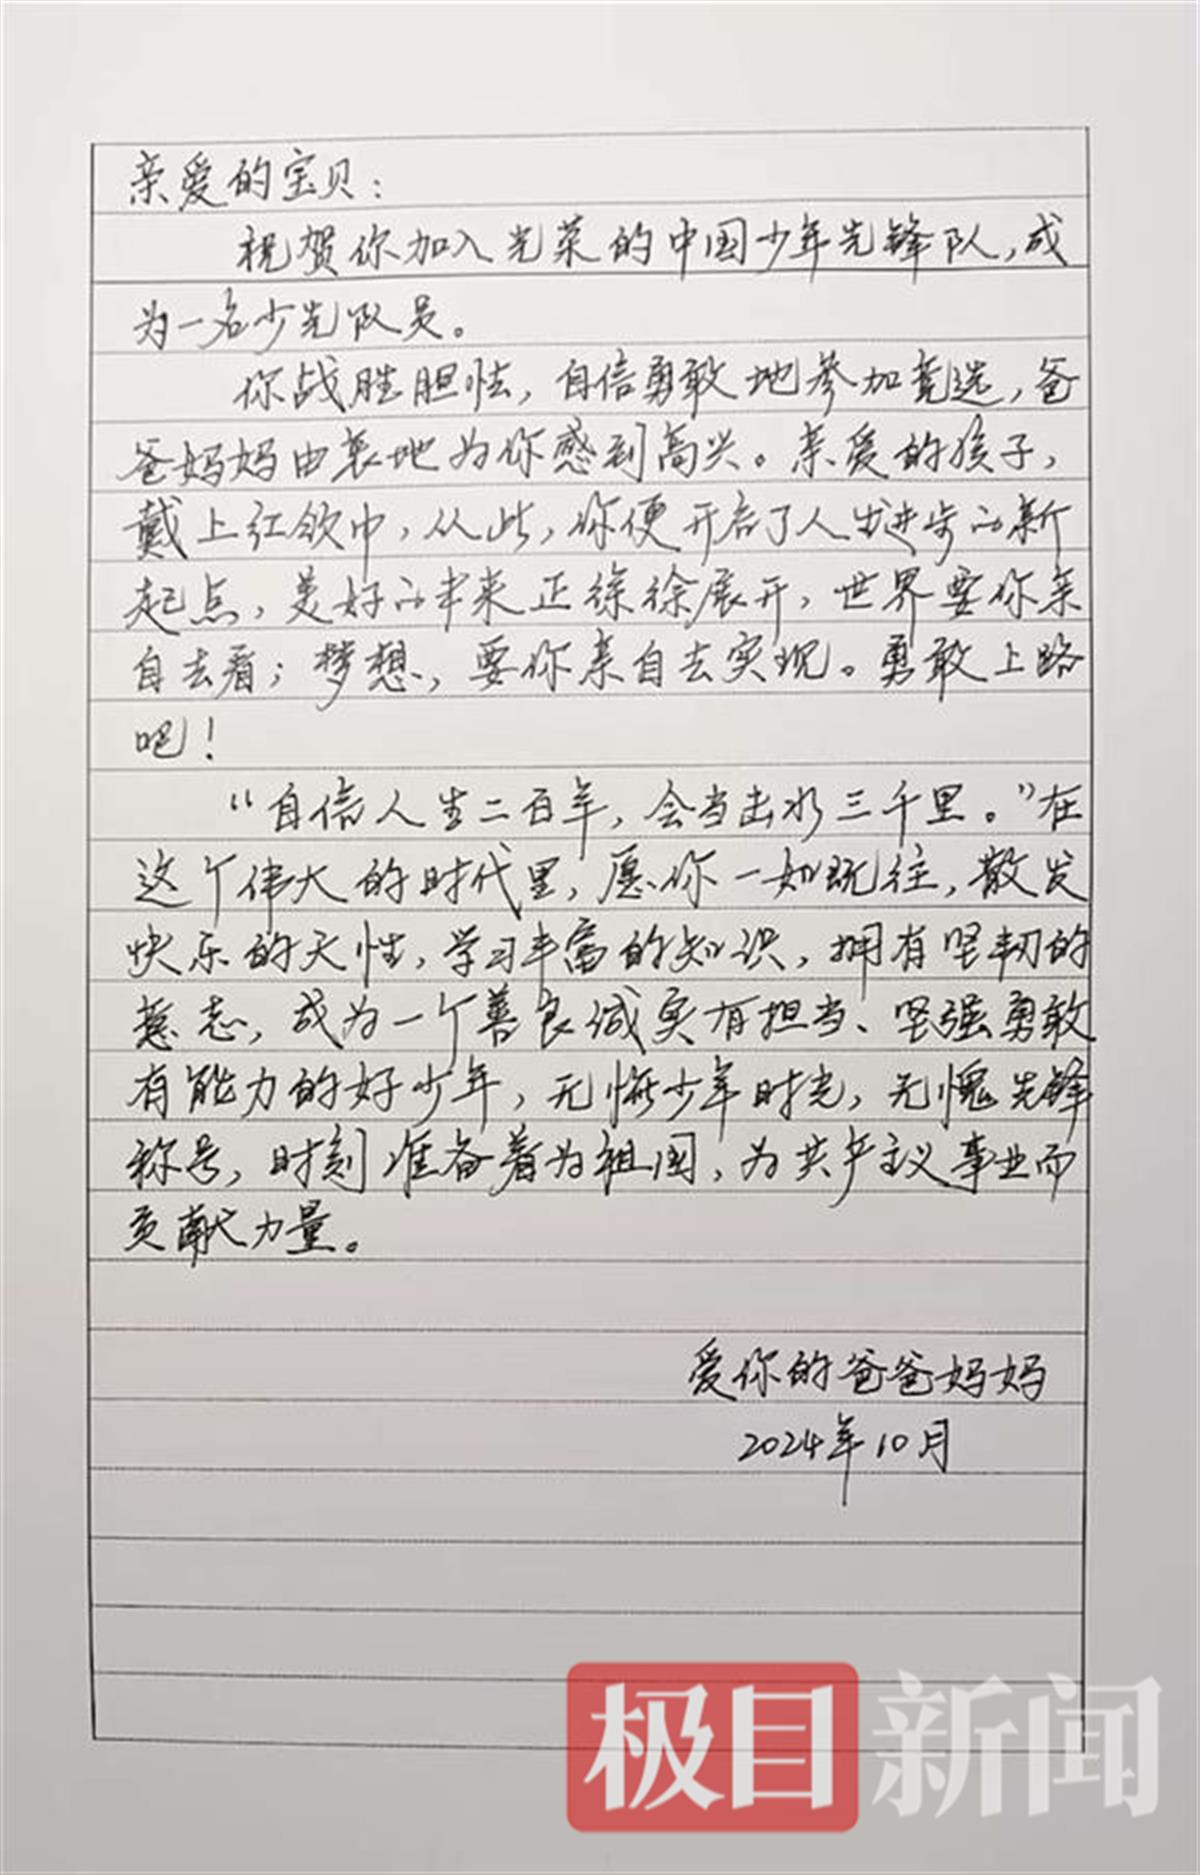 亲爱的宝贝：
祝贺你加入光荣的中国少年先锋队，成
为一名少先队员。
你战胜胆怯，自信勇敢地参加竞选，爸
爸妈妈由衷地为你感到高兴。亲爱的孩子，
戴上红领巾，从此，你便开启了人生进步的新
起点，美好的未来正徐徐展开，世界要你亲
自去看；梦想，要你亲自去实现。勇敢上路
吧！
“自信人生二百年，会当击水三千里。”在
这个伟大的时代里，愿你一如既往，散发
快乐的天性，学习丰富的知识，拥有坚韧的
意志，成为一个善良诚实有担当、坚强勇敢
有能力的好少年，无悔少年时光，无愧先锋
称号，时刻准备着为祖国，为共产主义事业而
贡献力量。
爱你的爸爸妈妈
2024年10月
极目新闻